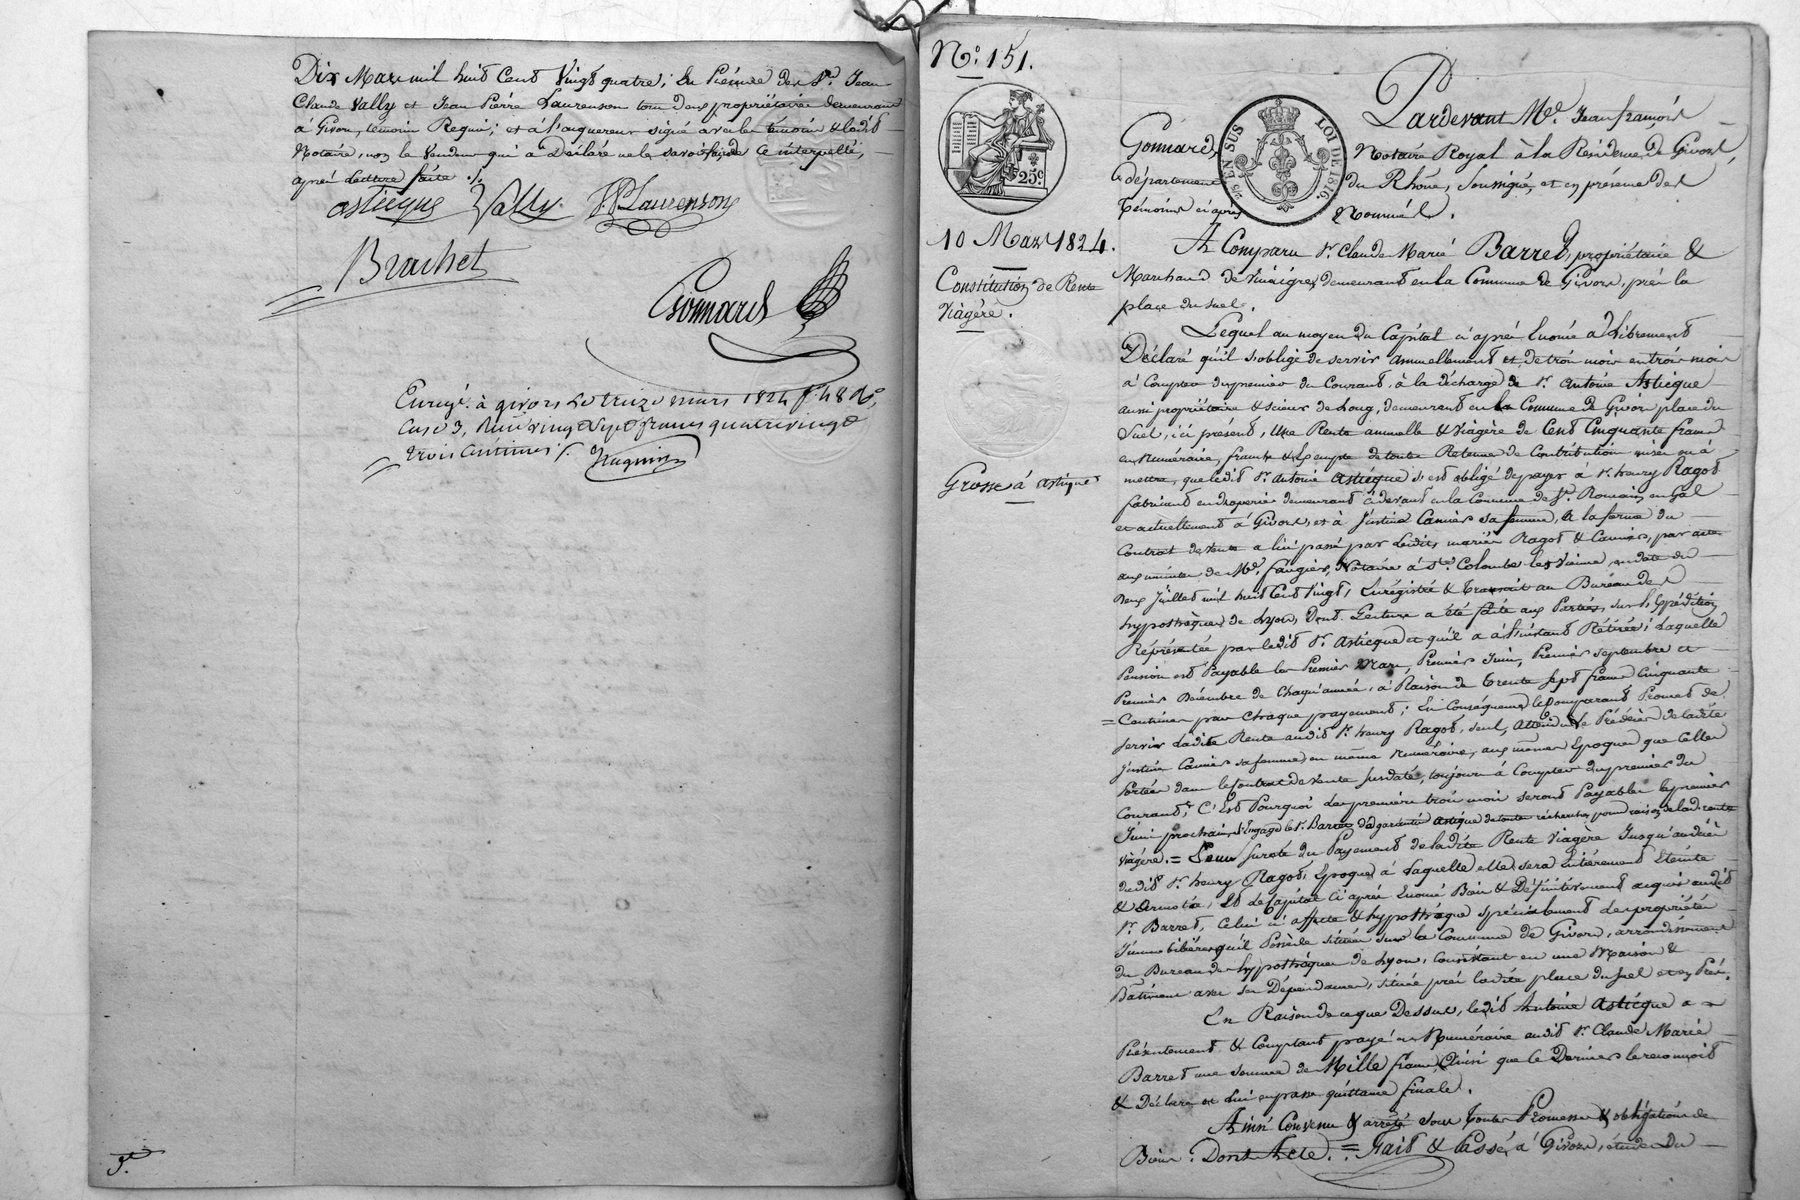 Dix Mars mil huit Cent Vingt quatre; En Présence des Srs. Jean
Claude Vally et Jean Pierre Laurenson tous deux propriétaires demeurant
à Givors, témoins Requis; et à l'acquereur signé avec les témoins & ledit
Notaire, non le Vendeur qui a Déclaré ne le savoir faire de ce interpellé,
après Lecture faite ./.
asticque Vally J.P. Laurenson
Brachet
Gonnard
Enregé. à givors Le treize mars 1824 f. 48 Vo.,
Case 3, Reçu vingt Sept francs quatrevingt
trois Centimes /.
No. 151.
25c.
10 Mars 1824.
Constitution de Rente
Viagère.
Grosse à asticque
25 EN SUS LOI DE 1816.
Pardevant Me. Jean françois
Gonnard, Notaire Royal à la Résidence de Givors,
département du Rhône, Soussigné, et en présence des
témoins ci après Nommés.
A Comparu Sr. Claude Marie Barret, propriétaire &
Marchand de Vinaigre, demeurant en la Commune de Givors, près la
place du Suel.
Lequel au moyen du Capital ci après Enoncé a Librement
Déclaré qu'il s'oblige de servir annuellement et de trois mois en trois mois
à Compter du premier du Courant, à la décharge de Sr. Antoine Asticque
aussi propriétaire & scieur de Long, demeurant en la Commune de Givors place du
Suel, ici présent, Une Rente annuelle & Viagère de Cent Cinquante francs
en Numéraire, franche & exempte de toute Retenue de Contribution mise ou à
mettre, que ledit Sr. Antoine Asticque s'est obligé de payer à Sr. henry Ragot
fabricant en draperie demeurant cidevant en la Commune de St. Romain en Gal
et actuellement à Givors, et à Justine Canier sa femme, à la forme du
Contrat de vente a lui passé par Lesdits mariés Ragot & Canier, par acte
aux minutes de Me. faugier, Notaire à Ste. Colombe les Vienne, en date du
Deux Juillet mil huit Cent Vingt, Enregistré & transcrit au Bureau des
hypothèques de Lyon, Dont Lecture a été faite aux Parties, sur l'Expédition
Représentée par ledit Sr. Asticque et qu'il a à l'instant Retirée; Laquelle
Pension est Payable les Premier Mars, Premier Juin, Premier Septembre et
Premier Décembre de Chaqu'année, à Raison de trente sept francs Cinquante
= Centimes pour Chaque payement; En Conséquence le Comparant Promet de
servir Ladite Rente audit Sr. henry Ragot, seul, Attendu le Prédécès de ladite
Justine Canier sa femme, en même Numéraire, aux mêmes Epoques que Celles
Portées dans le Contrat de vente susdaté, toujours à Compter du premier du
Courant, C'Est Pourquoi Les premiers trois mois seront Payables le premier
Juin prochain, s'Engage le Sr. Barret d'garantir Asticque de toute recherche pour raison de ladite rente
viagère. = Pour sureté du Payement de ladite Rente Viagère Jusqu'au décès
dudit Sr. henry Ragot, Epoque à Laquelle elle sera Entièrement Eteinte
& Amortie, Et le Capital ci après Enoncé Bien & Définitivement acquis audit
Sr. Barret, Celui ci affecte & hypothèque spécialement Les propriétés
Immobilières qu'il Possède situées sur la Commune de Givors, arrondissement
du Bureau des hypothèques de Lyon, Consistant en une Maison &
Bâtiment avec ses Dépendances, située près ladite place du Suel
En Raison de ce que Dessus, ledit Antoine Asticque a
Présentement & Comptant payé en Numéraire audit Sr. Claude Marie
Barret une Somme de Mille francs, Ainsi que Ce Dernier le reconnoit
& Déclare et Lui en passe quittance finale.
Ainsi Convenu & arrêté sous toutes Promesses & obligations de
Biens: Dont Acte. = Fait & Passé, à Givors, étude Du